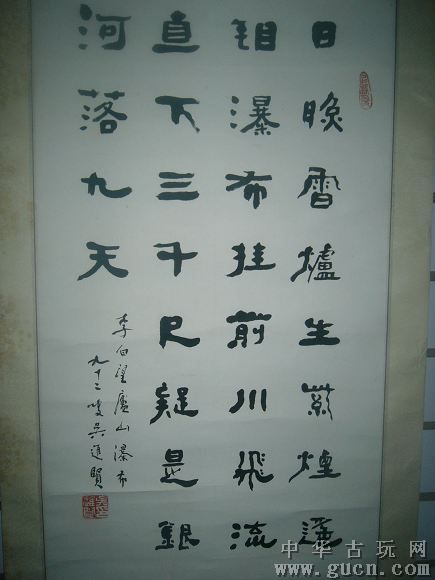 日香爐生紫煙遙
瀑布挂前川飛流
直下三千尺疑是銀
河落九天
李白望廬山瀑布
九十二叟吳進賢
中華古玩网
www.gucn.com